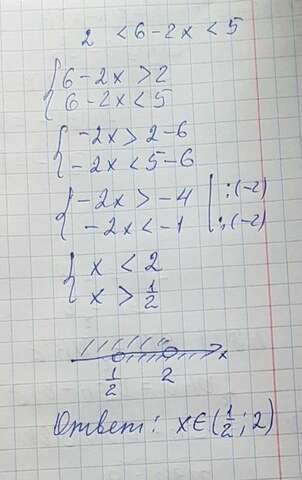 2 < 6 - 2x < 5
{ 6 - 2x > 2
6 - 2x < 5
{ -2x > 2 - 6
-2x < 5 - 6
{ -2x > -4 | :(-2)
-2x < -1 | :(-2)
{ x < 2
x > 1/2
x
1/2 2
Ответ: x∈(1/2; 2)